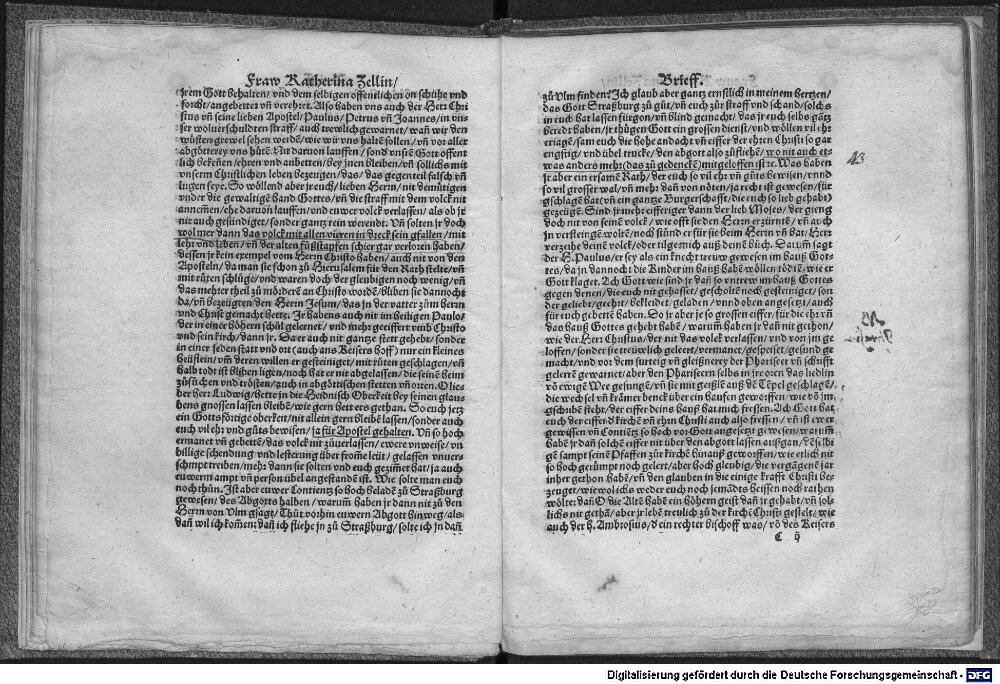 Fraw Katherina Zellin/
jrem Gott behalten/ vnd dem selbigen offentlichen on schühe vnd
forcht/ angebetten vñ verehret. Also haben vns auch der Herr Chri
stus vñ seine lieben Apostel/ Paulus/ Petrus vñ Joannes/ in vn-
ser wolverschuldten straff/ auch trewlich gewarnet/ wañ wir den
wüsten grewel sehen werdẽ/ wie wir vns haltẽ sollen/ vñ vor aller
abgötterey vns hütẽ. Nit daruon lauffen/ sond vnsẽ Gott offent
lich bekeñen/ ehren vnd anbetten/ bey jnen bleiben/ vñ sollichs mit
vnserm Christlichen leben bezeugen/ das/ das gegenteil falsch vñ
lugen seye. So wöllend aber jr euch/ lieben Herrn/ nit demütigen
vnder die gewaltigẽ hand Gottes/ vñ die straff mit dem volck mit
annem̃en/ ehe daruon lauffen/ vnd euwer volck verlassen/ als ob jr
nie auch gesündiget/ sonder gantz rein werendt. Vñ solten jr doch
wol mer dann das volck mit allen vieren in dreck sein gfallen/ mit
lehr vnd leben/ vñ der alten füßstapfen schier gar verloren haben/
dessen jr kein exempel vom Herrn Christo haben/ auch nit von den
Aposteln/ da man sie schon zů Hierusalem für den Rath stelte/ vñ
mit růten schlůge/ vnd waren doch der gleubigen noch wenig/ vñ
das mehrer theil zů mörderẽ an Christo wordẽ/ bliben sie dannocht
da/ vñ bezeügten den Herrn Jesum/ das jn der vatter zům herrn
vnd Christ gemacht hette. Jr habens auch nit im heiligen Paulo/
der in einer höhern schůl gelernet/ vnd mehr geeiffert vmb Christo
vnd sein kirch/ dann jr. Da er auch nit gantze stett gehebt/ sonder
in einer jeden statt vnd ort (auch ans Keisers hoff) nur ein kleines
heüflein/ vm̃ deren willen er gesteiniget/ mit růten geschlagen/ vñ
halb todt ist bliben ligen/ noch hat er nit abgelassen/ die seinẽ heim
zůsůchen vnd trösten/ auch in abgöttischen stetten vñ orten. O lie
ber herr Ludwig/ hette jn die Heidnisch Oberkeit bey seinen glau-
bens gnossen lassen bleibẽ/ wie gern hett ers gethan. So euch jetz
ein Gottsförtige oberkeit/ nit allein gern bleibẽ lassen/ sonder auch
euch vil ehr vnd gůts bewisen/ ja für Apostel gehalten. Vñ so hoch
ermanet vñ gebettẽ/ das volck nit zůuerlassen/ ewere vnweise/ vn
billige schendung vnd lesterung über from̃e leüt/ gelassen vnuer-
schmpt treiben/ mehr dann sie solten vnd euch gezim̃et hat/ ja auch
euwerm ampt vñ person übel angestandẽ ist. Wie solte man euch
noch thůn. Ist aber euwer Conscientz so hoch beladẽ zů Straßburg
gewesen/ des Abgotts halben/ warum̃ haben jr dann nit zů den
Herrn von Vlm gsagt/ Thůt vorhin euwern Abgott hinweg/ als-
dañ wil ich kom̃en: dañ ich fliehe jn zů Straßburg/ solte ich jn dañ
Brieff.
zů Vlm finden? Ich glaub aber gantz ernstlich in meinem hertzen/
das Gott Straßburg zů gůt/ vñ euch zůr straff vnd schand/ solchs
in euch hat lassen fürgon/ vñ blind gemacht/ das jr euch selbs gãtz
beredt haben/ jr thůgen Gott ein grossen dienst/ vnd wöllen vil ehr
eriagẽ/ sam euch die hohe andacht vñ eiffer der ehren Christi so gar
engstige/ vnd übel trucke/ den abgott also zů fliehẽ/ wo nit auch et-
was anders mehr (das zů gedenckẽ) mitgeloffen ist rc. Was haben
jr aber ein ersamẽ Rath/ der euch so vil ehr vñ gůts bewisen/ vnnd
so vil grosser wal/ vñ mehr dañ von nöten/ ja recht ist gewesen/ für
gschlagen hat/ vñ ein gantze Burgerschafft (die euch so lieb gehabt)
gezigẽ. Sind jr mehr eifferiger dann der lieb Moses/ der gieng
doch nit von seinẽ volck/ wie offt sie den Herrn erzürntẽ/ vñ auch
jn versteingen woltẽ/ noch stůnd er für sie beim Herrn vñ bat/ Herr
verzeihe deinẽ volck/ oder tilge mich auß deinẽ bůch. Darum̃ sagt
der H. Paulus/ er sey als ein knecht treuw gewesen im hauß Got-
tes/ da jn dannocht die Kinder im hauß habẽ wöllen tödtẽ/ wie er
Gott klaget. Ach Gott wie sind jr dañ so vntrew im hauß Gottes
gegen denen/ die euch nit gehasset/ gescholtẽ noch gesteiniget/ son
der geliebt/ geehrt/ bekleidet/ geladen/ vnnd oben angesetzt/ auch
für euch gebettẽ haben. So jr aber je so grossen eifer/ für die ehr vñ
das hauß Gottes gehebt habẽ/ warum̃ haben jr dañ nit gethon/
wie der Herr Christus/ der nit das volck verlassen/ vnd von jm ge
loffen/ sonder sie treüwlich geleert/ vermanet/ gespeiset/ gesund ge
macht/ vnd vor dem surteig vñ gleißnerey der Phariseer vñ schrifft
gelerrẽ gewarnet/ aber den Phariseern selbs in jre oren das liedlin
võ ewigẽ Wee gesungẽ/ vñ sie mit geißlẽ auß dẽ Tẽpel geschlagẽ/
die wechsel vñ krämer benck über ein hauffen geworffen/ wie võ jm
gschribẽ steht/ der eifer deins hauß hat mich fressen. Ach Gott hat
euch der eifer d kirchẽ vñ ehrn Christi auch also fressen/ vñ ist ewer
gewissen vñ Contiẽtz so hoch vor Gott angesetzt gewesen/ warum̃
habẽ jr dañ solchẽ eiffer nit über den abgott lassen außgan/ dẽ selbi
gẽ sampt seinẽ Pfaffen zůr kirchẽ hinauß geworffen/ wie etlich nit
so hoch gerümpt noch gelert/ aber hoch gleubig/ die vergãgenẽ jar
in her gethon habẽ/ vñ den glauben in die einige krafft Christi be-
zeuget/ wie wol ichs weder euch noch jemãdts heissen noch rathen
wölte: dañ O die Altẽ habẽ ein höhern geist dañ jr gehabt/ võ sol-
lichs nit gethã/ aber jr lebẽ treulich zů der kirchẽ Christi gestelt/ wie
auch der h. Ambrosius/ d ein rechter bischoff was/ võ des Keisers
C ij
43
Digitalisierung gefördert durch die Deutsche Forschungsgemeinschaft - DFG